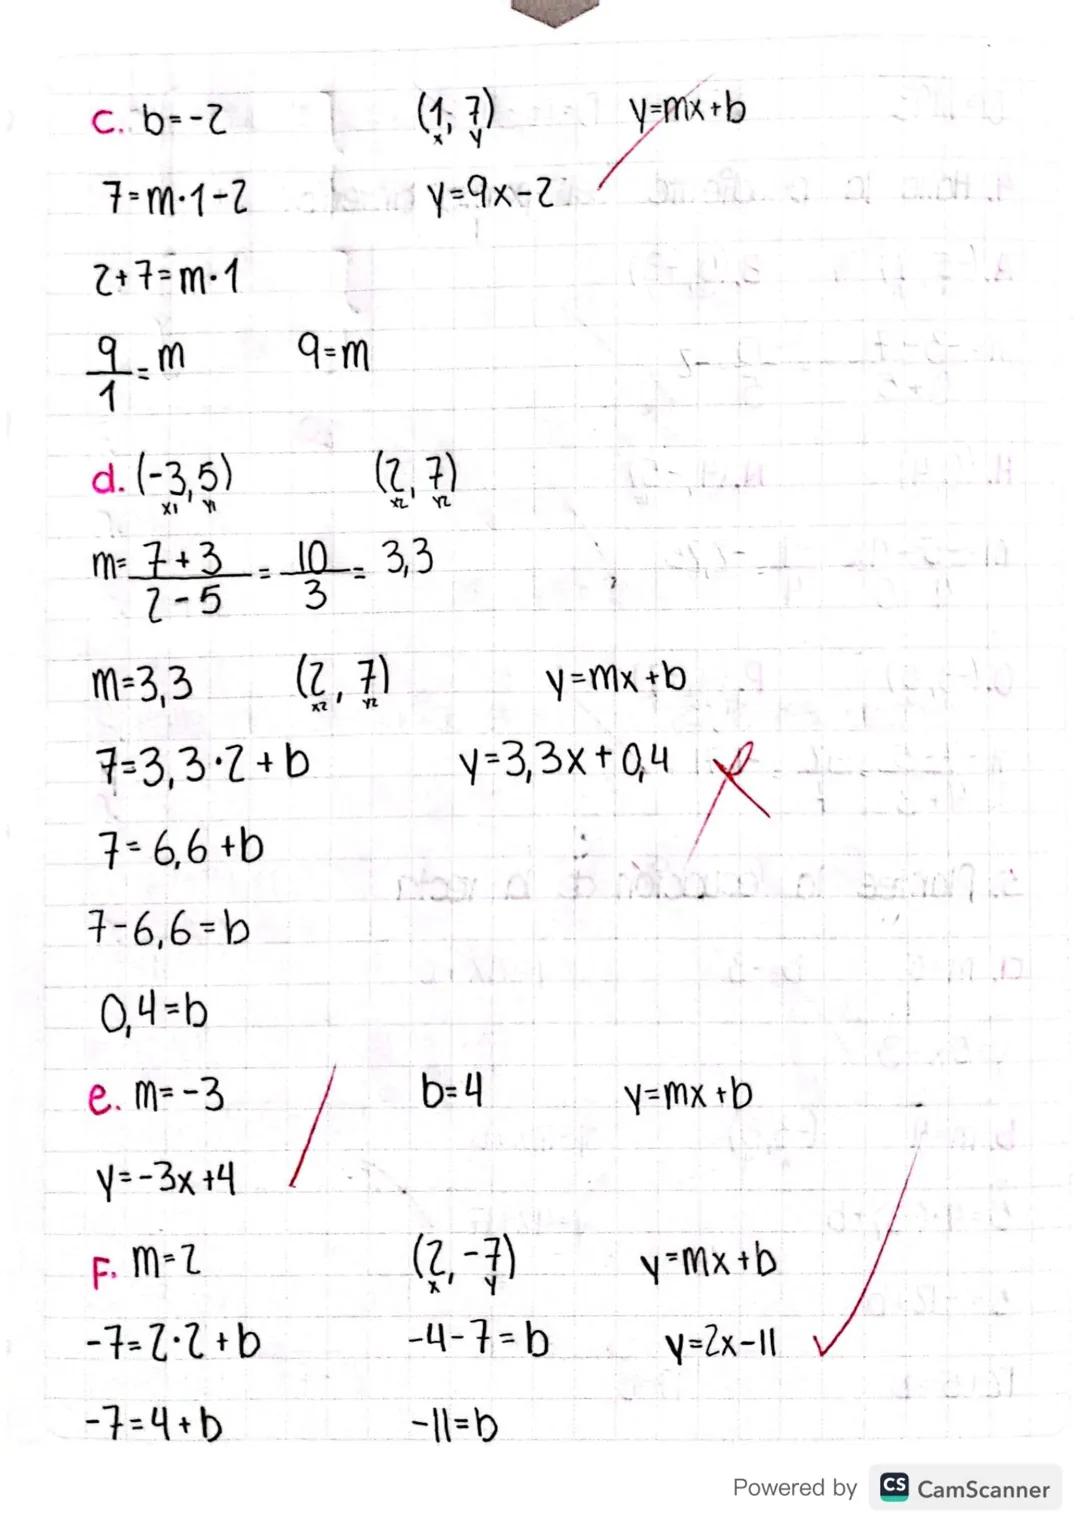 c. b=-2 (1, 7) y=mx+b
x y
7=m·1-2 y=9x-2
2+7=m·1
9/1=m 9=m
d. (-3,5) (2,7)
x1 y1 x2 y2
m= 7+3/2-5 = 10/3 = 3,3
m=3,3 (2, 7) y=mx+b
x2 y2
7=3,3·2+b y=3,3x+0,4
7=6,6+b
7-6,6=b
0,4=b
e. m=-3 b=4 y=mx+b
y=-3x+4
F. m=2 (2,-7) y=mx+b
x y
-7=2·2+b -4-7=b y=2x-11
-7=4+b -11=b
Powered by CS CamScanner